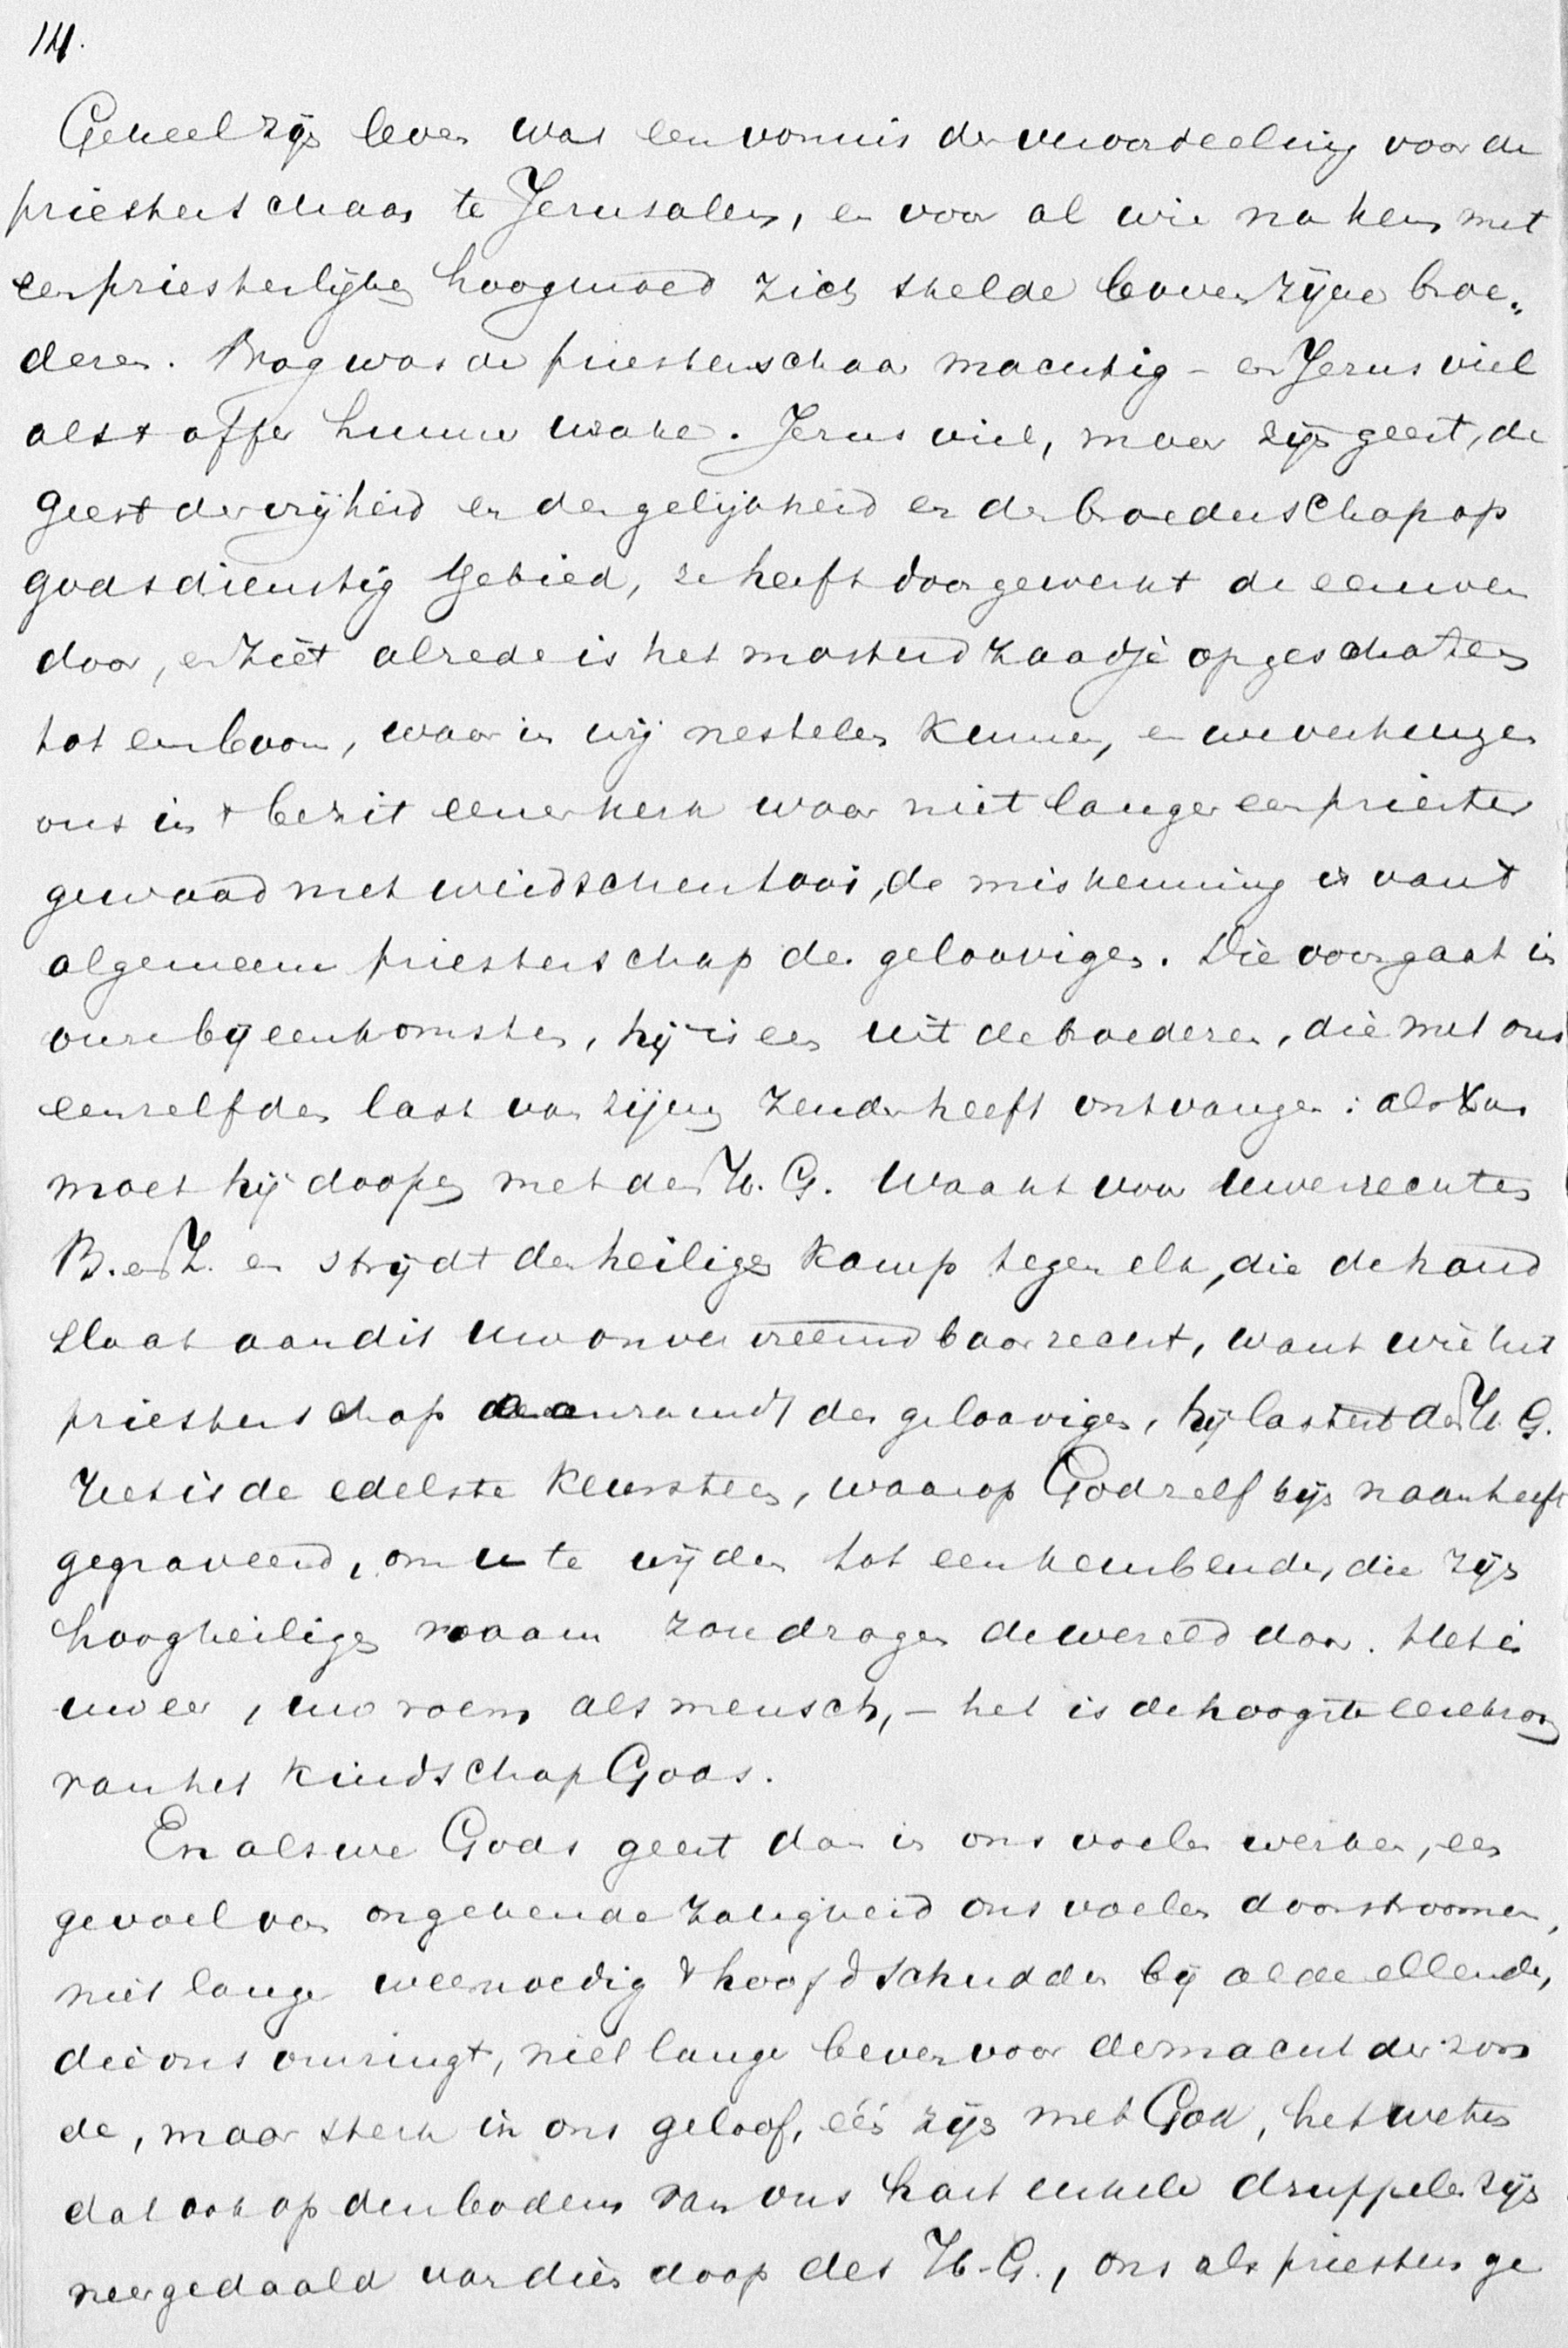 14.
Geheel zijn leven was een vonnis der veroordeeling voor de
priesterschaar te Jerusalem, en voor al wie na hem met
een priesterlijken hoogmoed zich stelde boven zijne broe„
deren. Nog was de priesterschaar machtig – en Jezus viel
als 't offer hunner wrake. Jezus viel, maar zijn geest, de
geest der vrijheid en der gelijkheid en der broederschap op
godsdienstig gebied, ze heeft doorgewerkt de eeuwen
door, en ziet alrede is het mosterdzaadje opgeschoten
tot een boom, waarin wij nestelen kunnen, en we verheugen
ons in 't bezit eener kerk waar niet langer een priester
gewaad met wiidschen tooi, de miskenning is van 't
algemeene priesterschap der geloovigen. Die voorgaat in
onze bijeenkomsten, hij is een uit de broederen, die met ons
eenzelfden last van zijnen Zender heeft ontvangen: als
moet hij doopen met den H. G. Waakt voor uwe rechten
B. en Z. en strijdt den heiligen kamp tegen elk, die de hand
slaat aan dit uw onvervreemdbaar recht, want wie het
priesterschap aanrandt der geloovigen, hij lastert den H. G.
Het is de edelste keursteen, waarop God zelf zijn naam heeft
gegraveerd, om u te wijden tot een keurbende, die zijn
hoogheiligen naam zou dragen de wereld door. Het is
uw eer, uw roem als mensch, – het is de hoogste eerekroon
van het kindschap Gods.
En als we Gods geest dan in ons voelen werken, een
gevoel van ongekende zaligheid ons voelen doorstroomen,
niet langer weemoedig 't hoofd schudden bij al de ellende,
die ons omringt, niet langer beven voor de macht der zon
de, maar sterk in ons geloof, één zijn met God, het weten
dat ook op den bodem van ons hart enkele druppelen zijn
neergedaald van dien doop des H. G., ons als priesters ge